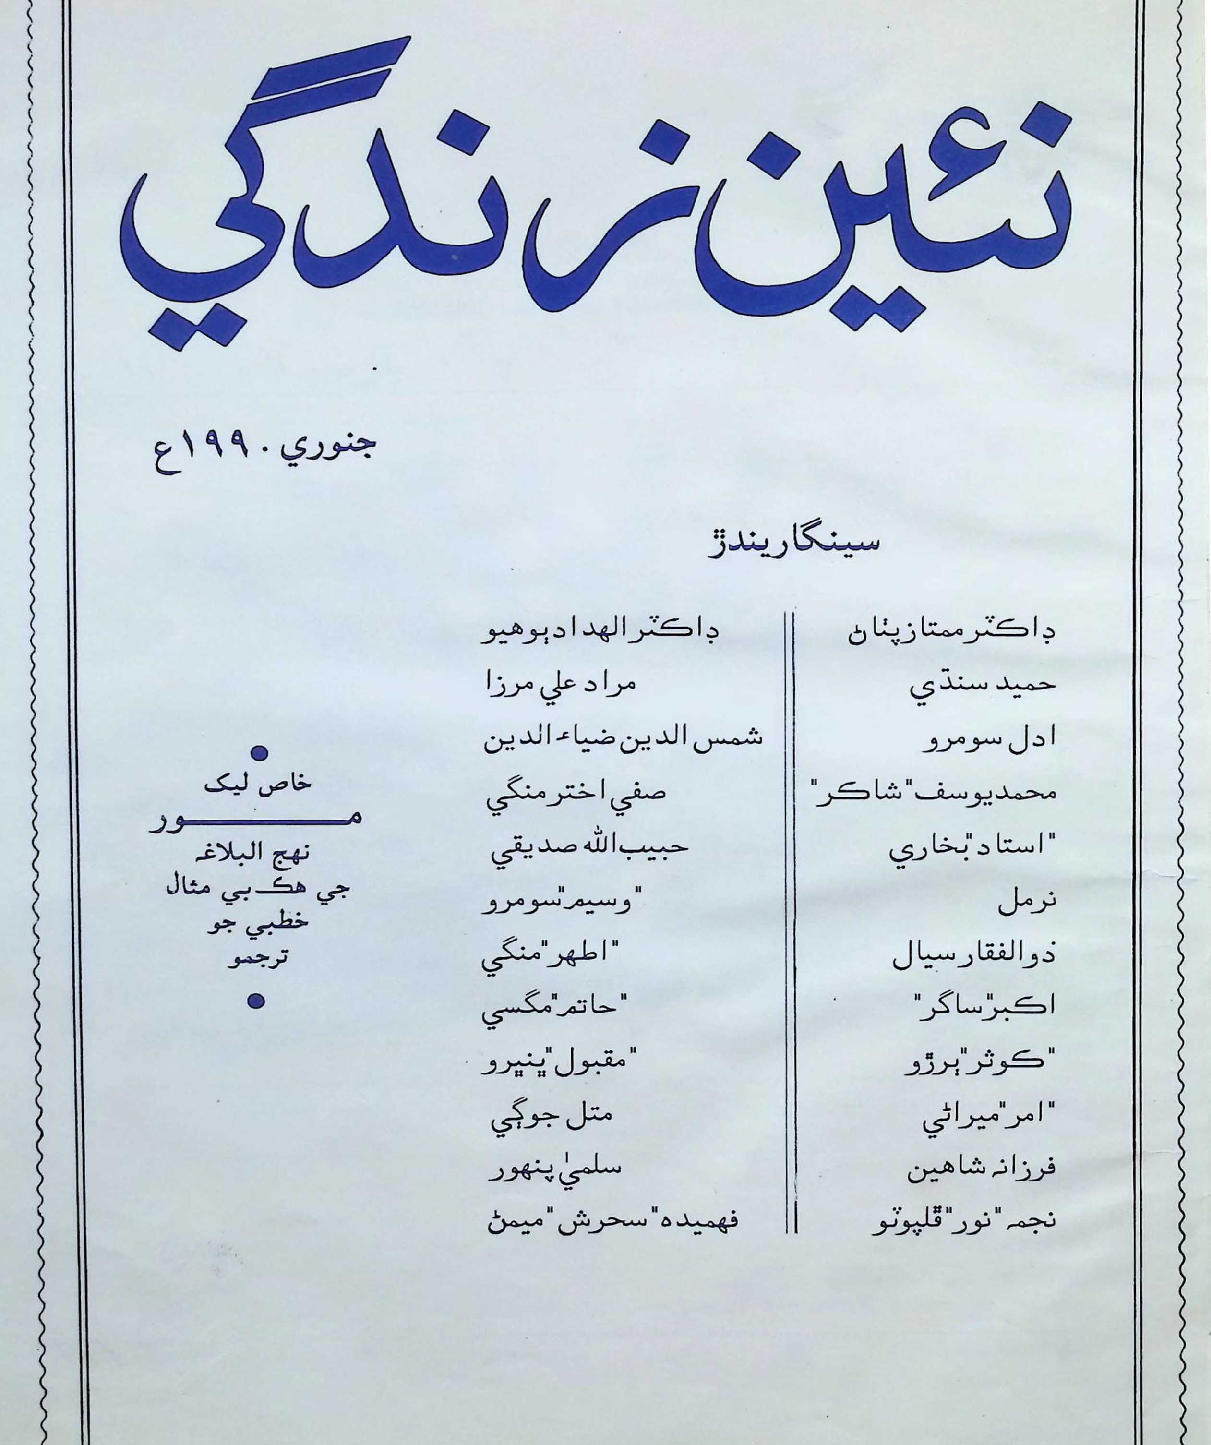 نئين زندگي
جنوري ۱۹۹۰ع
سينگاريندڙ
ڊاڪٽر ممتاز پٺاڻ
حميد سنڌي
ادل سومرو
محمد يوسف "شاڪر"
"استاد" بخاري
نرمل
ذوالفقار سيال
اڪبر "ساگر"
"ڪوثر" ٻرڙو
"امر" ميراڻي
فرزانہ شاهين
نجمہ "نور" ڦلپوٽو
ڊاڪٽر الهداد ٻوهيو
مراد علي مرزا
شمس الدين ضياءالدين
صفي اختر منگي
حبيب الله صديقي
"وسيم" سومرو
"اطهر" منگي
"حاتم" مگسي
"مقبول" ڀنڀرو
مٺل جوڳي
سلميٰ پنهور
فهميده "سحرش" ميمڻ
خاص ليک
مور
نهج البلاغہ
جي هڪ بي مثال
خطبي جو
ترجمو